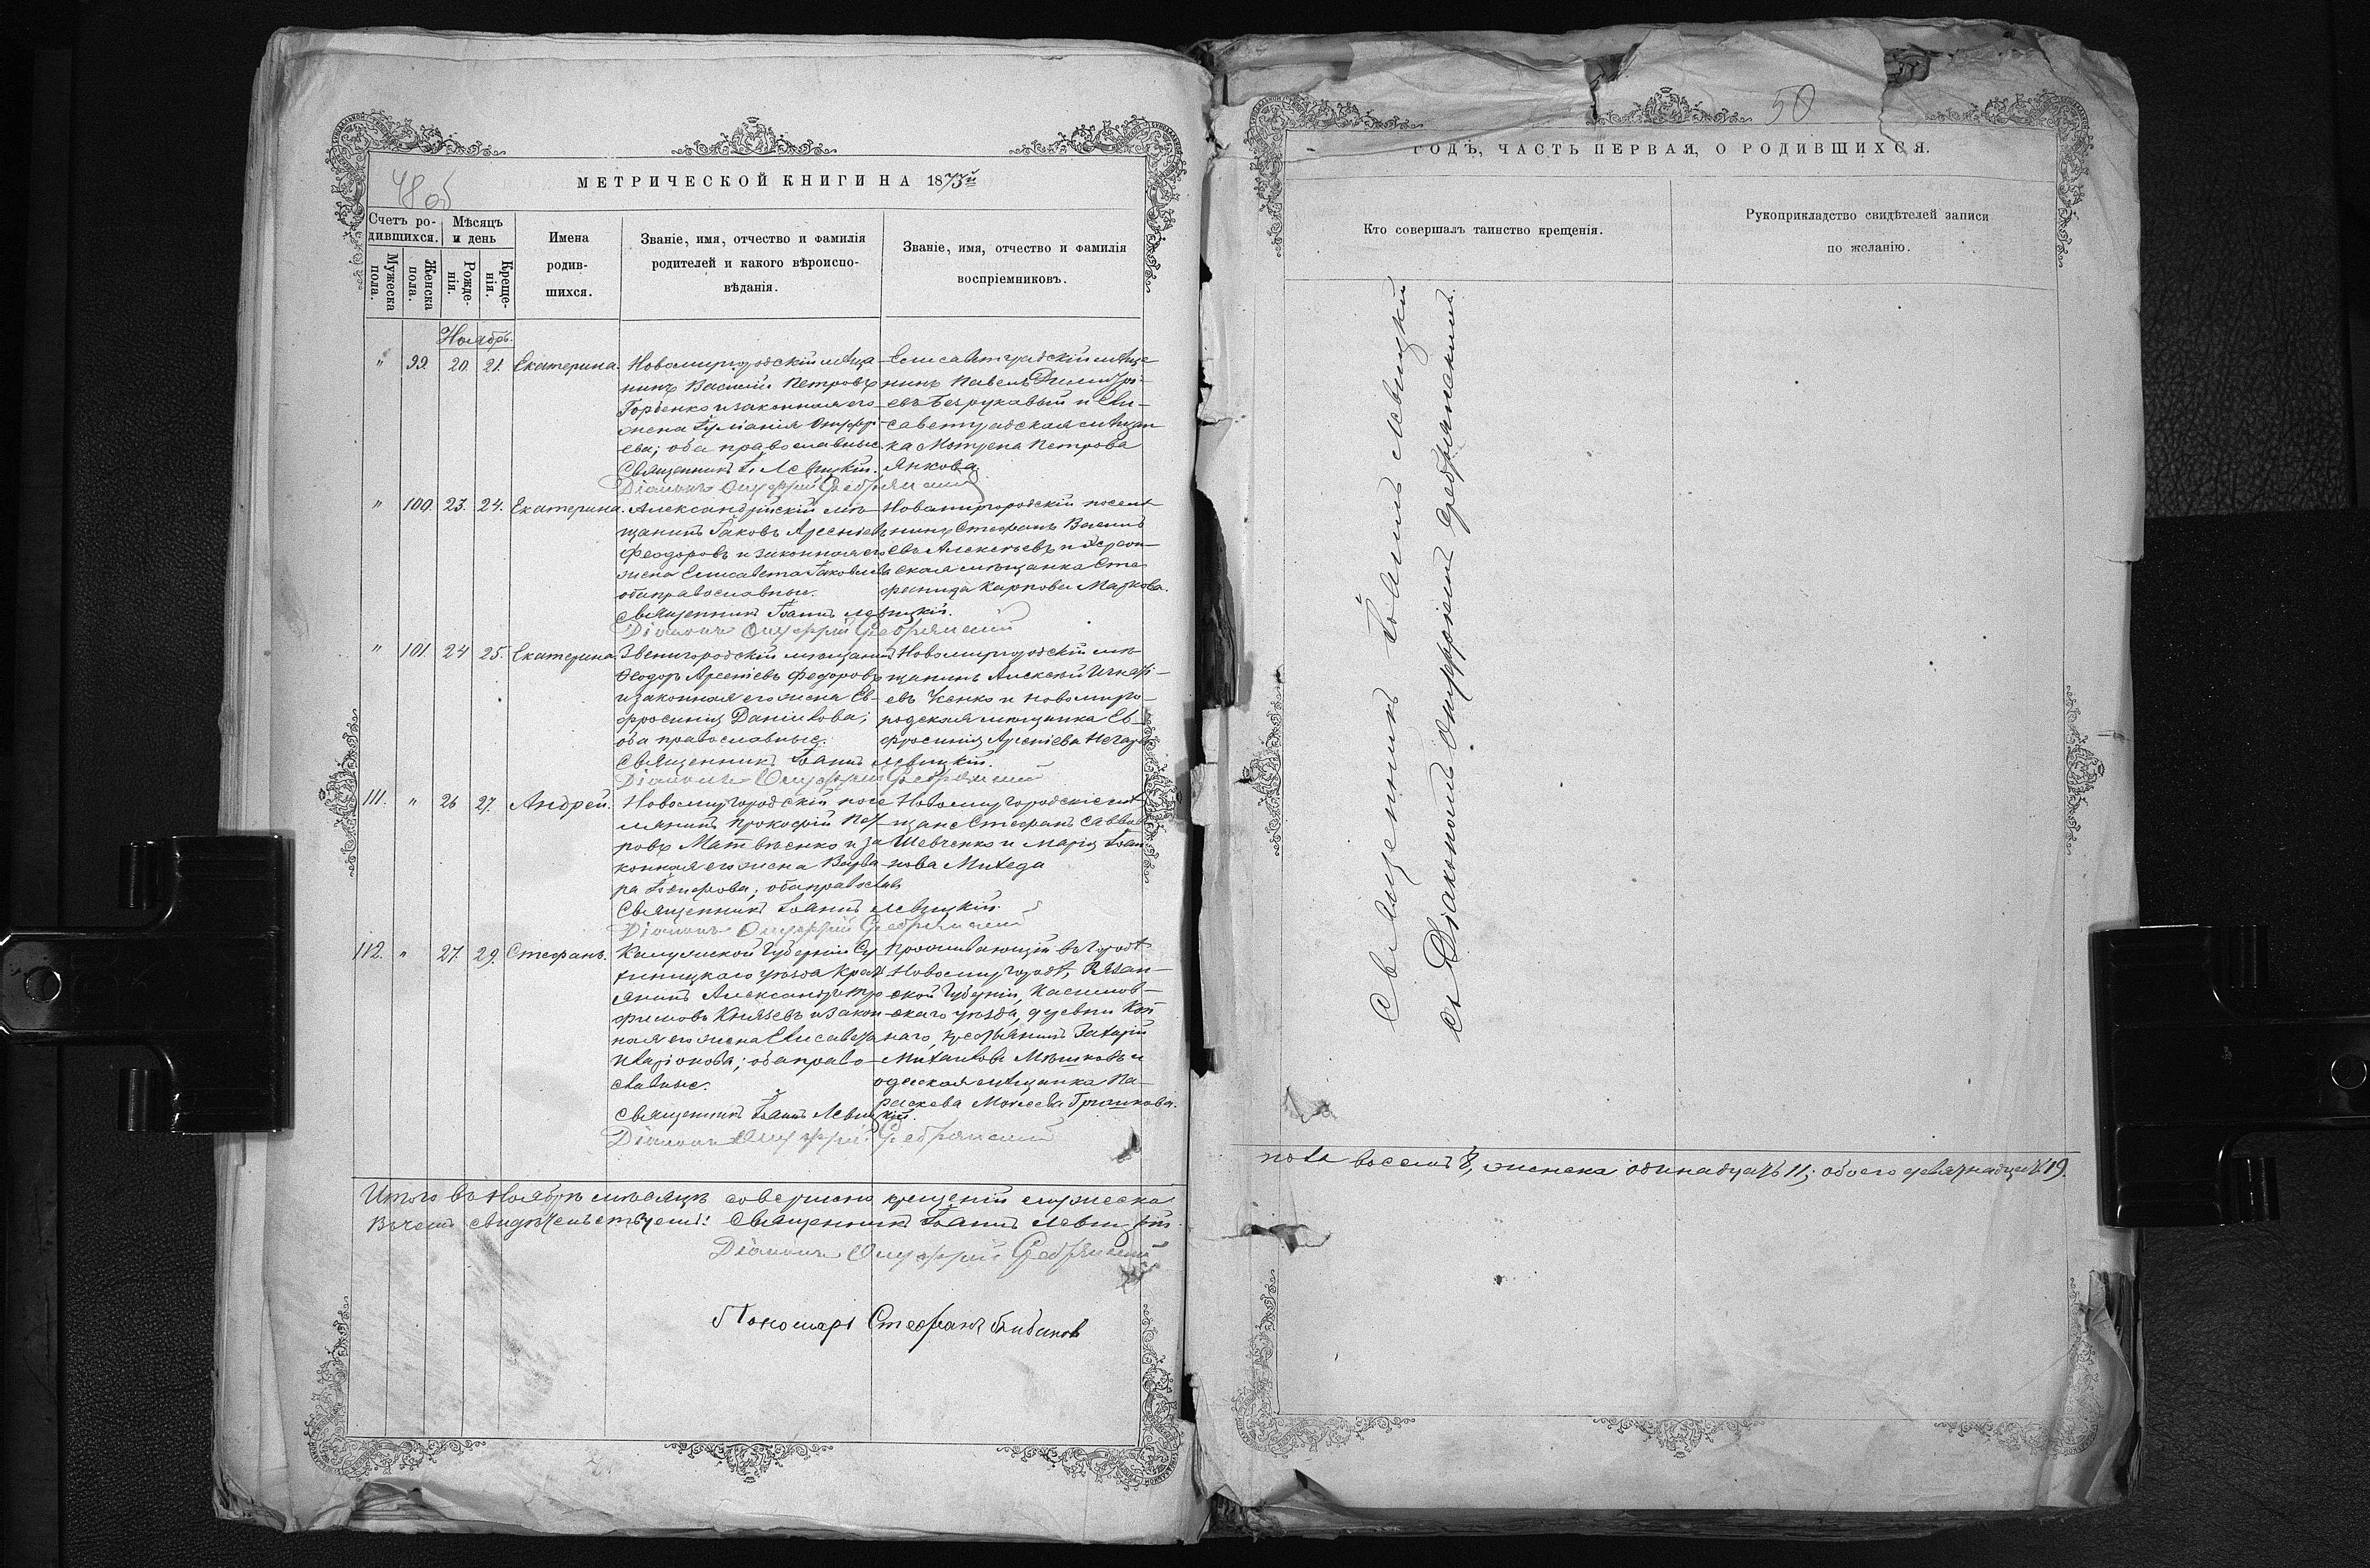 48 об
МЕТРИЧЕСКОЙ КНИГИ НА 1873й
Счетъ ро-
дившихся.
Мѣсяцъ
и день
Имена
родив-
шихся.
Званіе, имя, отчество и фамилія
родителей и какого вѣроиспо-
вѣданія.
Званіе, имя, отчество и фамилія
воспріемниковъ.
Мужеска
пола.
Женска
пола.
Рожде-
нія.
Креще-
нія.
Ноябрь.
" 99. 20. 21. Екатерина.
Новомиргородскій мѣща-
нинъ Василій Петровъ
Горбенко и законная его
жена Іуліанія Онуфрі-
ева; оба православные
Священникъ І. Левицкій.
Діаконъ Онуфрій Серебрянскій
Елисаветградскій мѣща-
нинъ Павелъ Димитрі-
евъ Безрукавый и Ели-
саветградская мѣщан
ка Мотрена Петрова
Янкова.
" 100. 23. 24. Екатерина.
Александрійскій мѣ-
щанинъ Іаковъ Арсеніевъ
Феодоровъ и законная его
жена Елисавета Іаковлева
оба православные.
Священникъ Іоаннъ Левицкій.
Діаконъ Онуфрій Серебрянскій
Новомиргородскій поселя
нинъ Стефанъ Василь
евъ Алексѣевъ и Херсон-
ская мѣщанка Сте
фанида Карпова Маркова.
" 101. 24 25. Екатерина.
Звенигородскій мѣщанинъ
Ѳеодоръ Арсеніевъ Федоровъ
и законная его жена Ев-
фросинія Даніилова;
оба православные.
Священникъ Іоаннъ Левицкій.
Діаконъ Онуфрій Серебрянскій
Новомиргородскій мѣ-
щанинъ Алексѣй Игнаті-
евъ Усенко и Новомирго-
родская мѣщанка Ев-
фросинія Арсеніева
111. " 26 27. Андрей.
Новомиргородскій посе
лянинъ Прокофій Пет-
ровъ Матвѣенко и за
конная его жена Варва
ра Іосифова; оба православ
Священникъ Іоаннъ Левицкій.
Діаконъ Онуфрій Серебрянскій
Новомиргородскіе мѣ
щане Стефанъ Саввовъ
Шевченко и Марія Іоан
нова Михеда
112. " 27. 29. Стефанъ.
Калужской Губерніи Су
хиницкаго уѣзда крест
янинъ Александръ Тро
фимовъ Князевъ и закон
ная его жена Елисавета
Иларіонова; оба право-
славные.
Священникъ Іоаннъ Левицкій.
Діаконъ Онуфрій Серебрянскій
Проживающій въ городѣ
Новомиргородѣ, Рязан-
ской Губерніи, Касимов-
скаго уѣзда, деревни
крестьянинъ Захарій
Михаиловъ Мѣшковъ и
одесская мѣщанка Па-
раскева Моисеева Гришкова.
Итого въ Ноябрѣ мѣсяцѣ совершено крещеній мужеска
Въ чемъ свидѣтельствуемъ: Священникъ Іоаннъ Левицкій
Діаконъ Онуфрій Серебрянскій
Пономарь Стефанъ
50
ГОДЪ, ЧАСТЬ ПЕРВАЯ, О РОДИВШИХСЯ.
Кто совершалъ таинство крещенія.
Рукоприкладство свидѣтелей записи
по желанію.
Священникъ Іоаннъ Левицкій
съ Діакономъ Онуфріемъ Серебрянскимъ.
пола восемь 8, женска одинадцать 11; обоего девятнадцать 19.